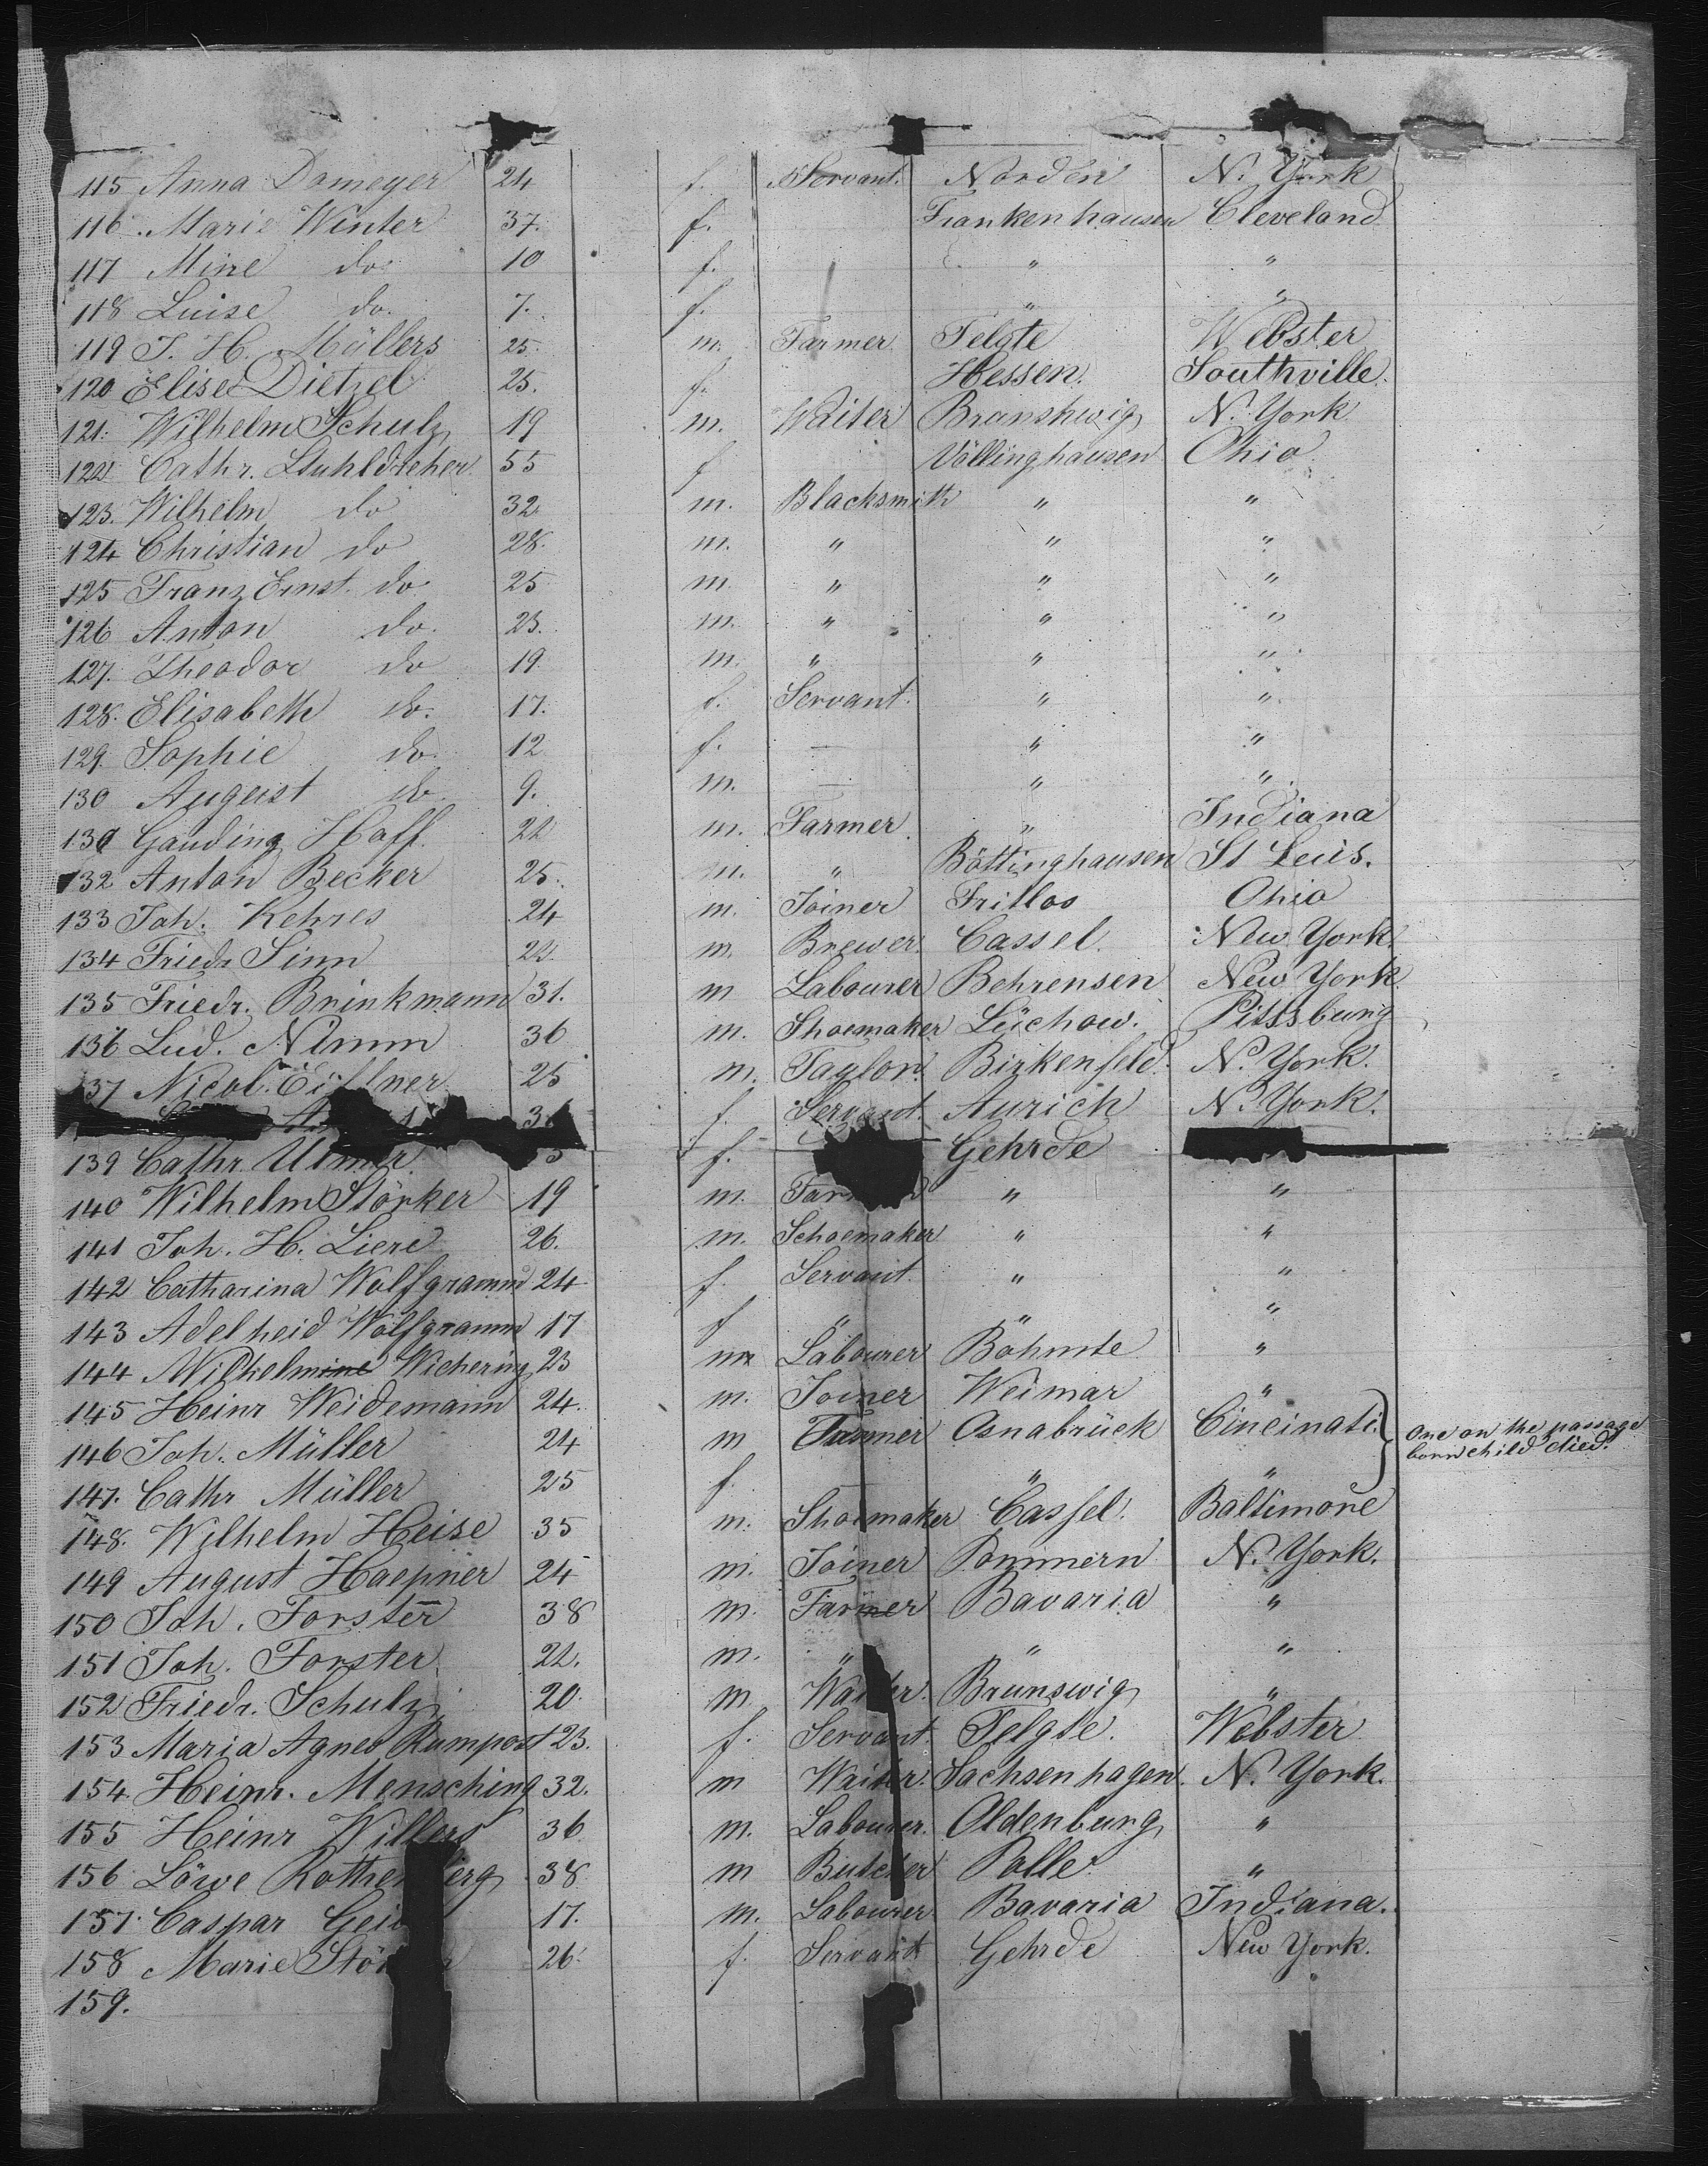 115 Anna Domeyer 24 f. Servant. Norden N. York
116. Marie Winter 37. f. Frankenhausen Cleveland
117 Mine do. 10 f. " "
118 Luise do. 7. f. " "
119 J. H. Müllers 25. m. Farmer Telgte Webster
120 Elise Dietzel 25. f. Hessen. Southville.
121. Wilhelm Schulz 19 m. Waiter Brunshwig N. York
122 Cathr. Stuhldreher 55 f Völlinghausen Ohio
123. Wilhelm do 32. m. Blacksmith " "
124 Christian do 28. m. " " "
125 Franz Ernst. do. 25 m. " " "
126 Anton do. 23. m. " " "
127. Theodor do 19 m. " " "
128. Elisabeth do. 17. f. Servant. " "
129. Sophie do. 12 f. — " "
130 August do. 9. m. — " "
131 Gauding Hoff. 22 m. Farmer " Indiana
132 Anton Becker 25. m. " Böttinghausen St Leuis.
133 Joh. Kehres 24 m. Joiner Frillos Ohio
134 Friedr Sinn 22. m. Brewer. Cassel. New York.
135 Friedr. Brinkmann 31. m Labourer Behrensen New York.
136 Lud. Nimm 36 m. Shoemaker Lüchow. Pittsburg
137 Nicol. 25 m. Taylor. Birkenfeld. N. York.
f. Servant. Aurich N. York.
139 Cathr. Ulmer. f. Gehrde
140 Wilhelm Störker 19 m. " "
141 Joh. H. Liere 26. m. Schoemaker " "
142 Catharina Wolfgramm 24 f. Servant. " "
143 Adelheid Wolfgramm 17 f " " "
144 Wilhelmine Wichering 23 m Labourer Bohmte "
145 Heinr Weidemann 24. m. Joiner Weimar "
146 Joh. Müller 24 m Farmer Osnabrück Cincinati. One on the passage
born child died.
147. Cathr Müller 25 f. " "
148. Wilhelm Heise 35 m. Shoemaker Cassel. Baltimore
149 August Haepner 24 m. Joiner Pommern N. York.
150 Joh. Forster 38 m. Farmer Bavaria "
151 Joh. Forster. 22. m. " " "
152 Friedr. Schulz 20. m. Waiter. Brunswig "
153 Maria Agnes Rumpost 23. f. Servant. Telgte. Webster
154. Heinr. Mensching 32. m Waiter. Sachsenhagen. N. York.
155 Heinr Willers 36 m. Labourer. Oldenburg "
156 Löwe Rothenberg 38 m Butcher Polle "
157. Caspar 17. m. Labourer Bavaria Indiana.
158 Marie 26. f. Servant Gehrde New York.
159.